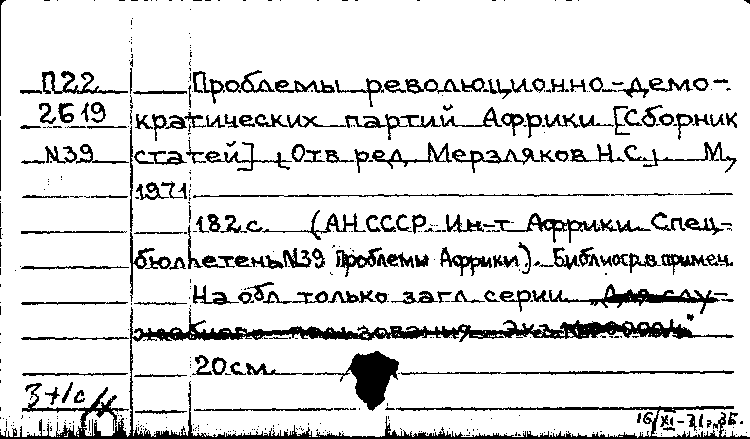 П22 Проблемы революционно-демо-
2619 кратических партий Африки [Сборник
N39 статей] [Отв ред Мерзляков Н.С.]. М,
1971
182 с. (АН СССР. Ин-т Африки. Спец-
бюллетень N39 Проблемы Африки). Библиогр. в примеч.
На обл только загл серии „Для слу-
жебного пользования Экз. №
20 см.
3+1с
16/XI-71г.